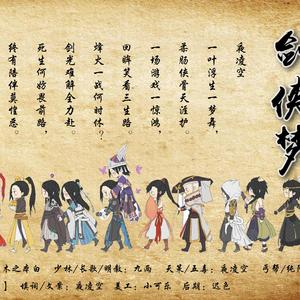 侠
梦
夜凌空
一叶浮生一梦舞，
柔肠侠骨天涯护。
一场游戏一惊鸿，
回眸笑看三生路。
烽火一战何时休？
剑光难解全力赴。
死生何妨畏前路，
终有陪伴莫惶恐。
木之本白 少林/长歌/明教：九雨 天策/五毒：夜凌空 丐帮/纯
】 填词/文案：夜凌空 美工：小可乐 后期：迟色